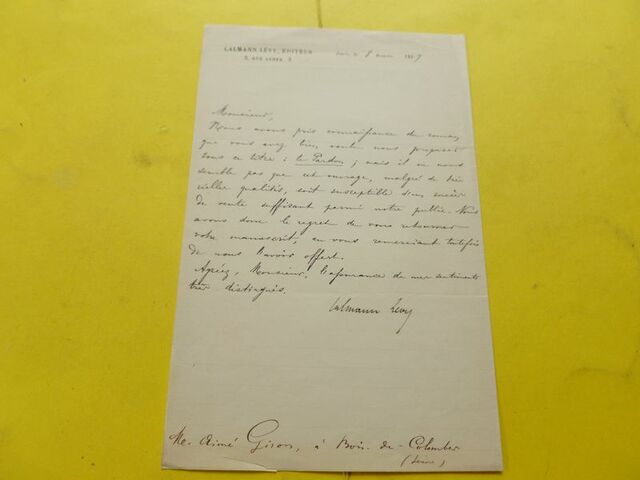 CALMANN LÉVY, ÉDITEUR
3, RUE AUBER, 3
Paris 8 188
Monsieur,
Nous avons pris connaissance du roman,
que vous avez bien voulu nous proposer
sous ce titre : le Pardon ; mais il ne nous
semble pas que cet ouvrage, malgré de très
réelles qualités, soit susceptible d'un succès
de vente suffisant parmi notre public. Nous
avons donc le regret de vous retourner
votre manuscrit, en vous remerciant toutefois
de nous l'avoir offert.
Agréez, Monsieur, l'assurance de mes sentiments
très distingués.
Calmann Lévy
Mr Aimé Giron, à Bois-de-Colombes
(Seine)